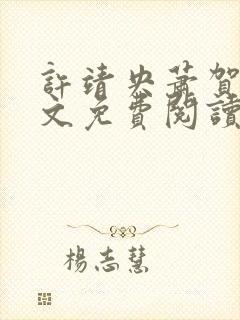 許靖央蕭賀
文免費閱讀
楊志慧